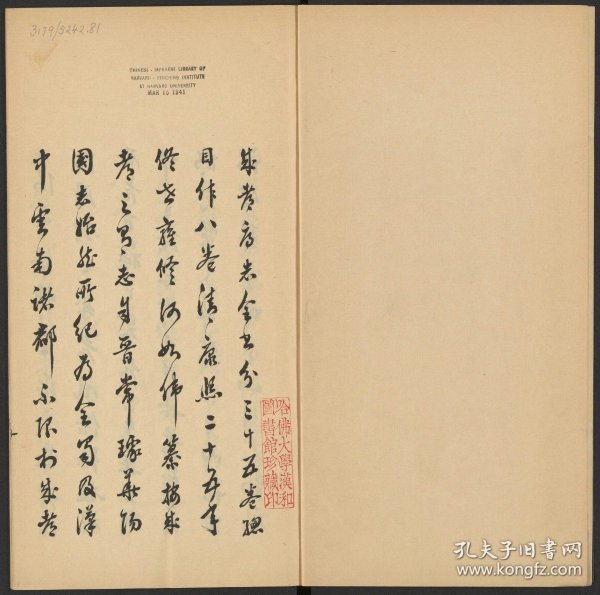 3179/5242.81
CHINESE-JAPANESE LIBRARY OF
HARVARD-YENCHING INSTITUTE
AT HARVARD UNIVERSITY
MAR 10 1941
成都府志全書分三十五卷總
目作八卷清康熙二十五年
佟世雍修何如偉纂按成
都之有志自晉常璩華陽
國志始然所紀為全蜀及漢
中雲南諸郡不限於成都
哈佛大學漢和
圖書館珍藏印
孔夫子旧书网
www.kongfz.com